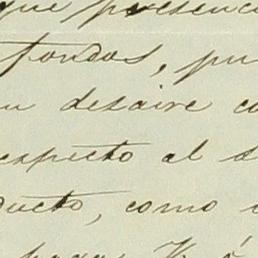 que presenci
fondos, pu
un desaire co
especto al d
ducto, como